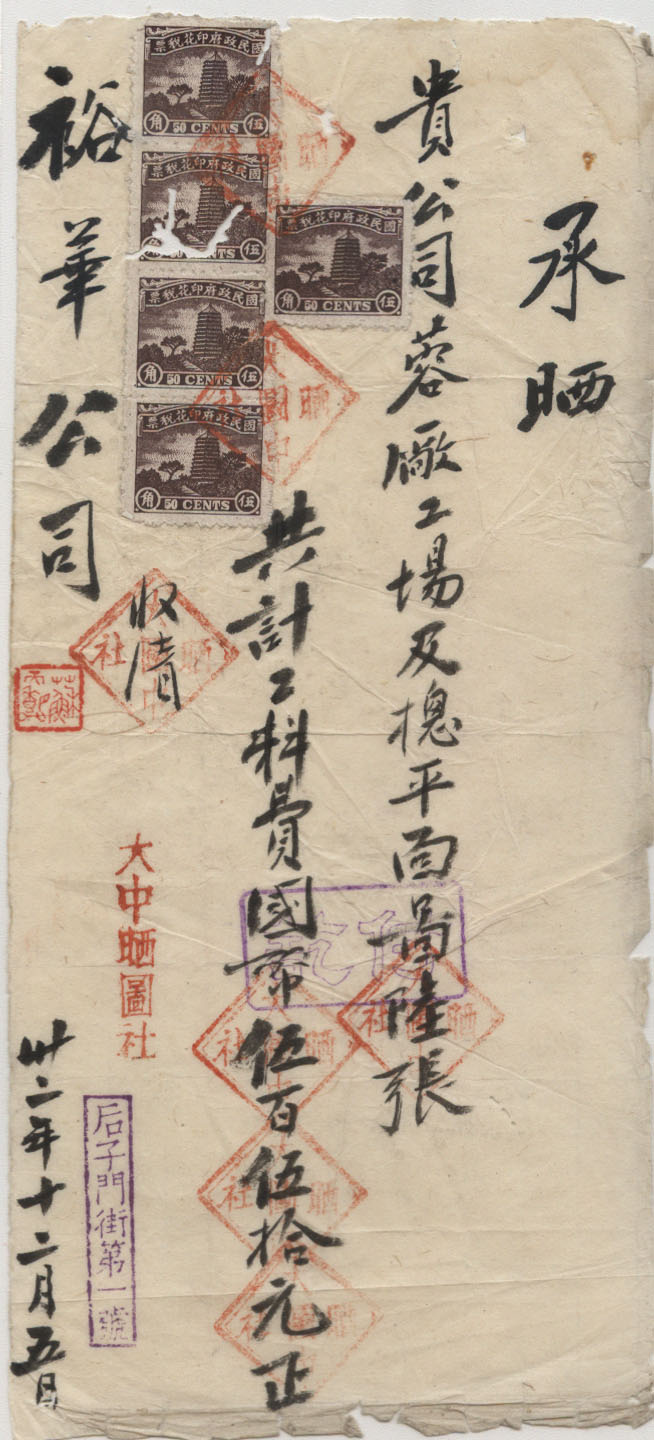 承晒
貴公司蓉廠工場及摠平面啚陸張
共計工料費國币伍百伍拾元正
裕華公司
收清
國民政府印花稅票
伍角
50 CENTS
國民政府印花稅票
伍角
50 CENTS
國民政府印花稅票
伍角
50 CENTS
國民政府印花稅票
伍角
50 CENTS
國民政府印花稅票
伍角
50 CENTS
付訖
大中晒圖社
后子門街第一號
卅二年十二月五日